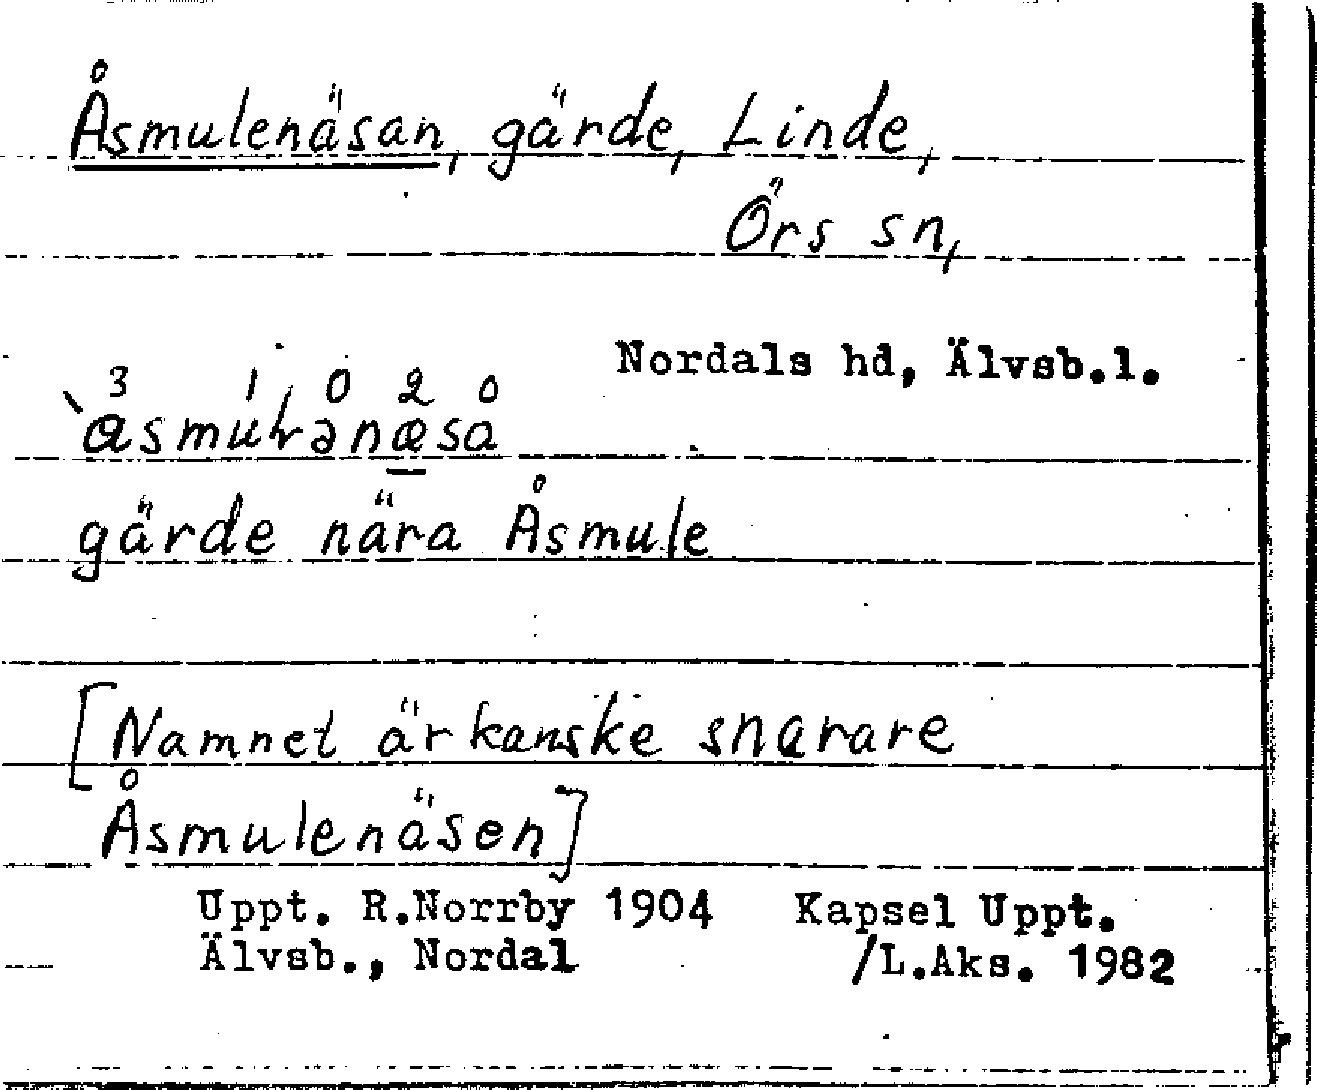 Åsmulenäsan, gärde, Linde,
Örs sn,
Nordals hd, Älvsb.l.
3 1 0 2 0
gärde nära Åsmule
[Namnet är kanske snarare
Åsmulenäsen]
Uppt. R.Norrby 1904 Kapsel Uppt.
Älvsb., Nordal /L.Aks. 1982